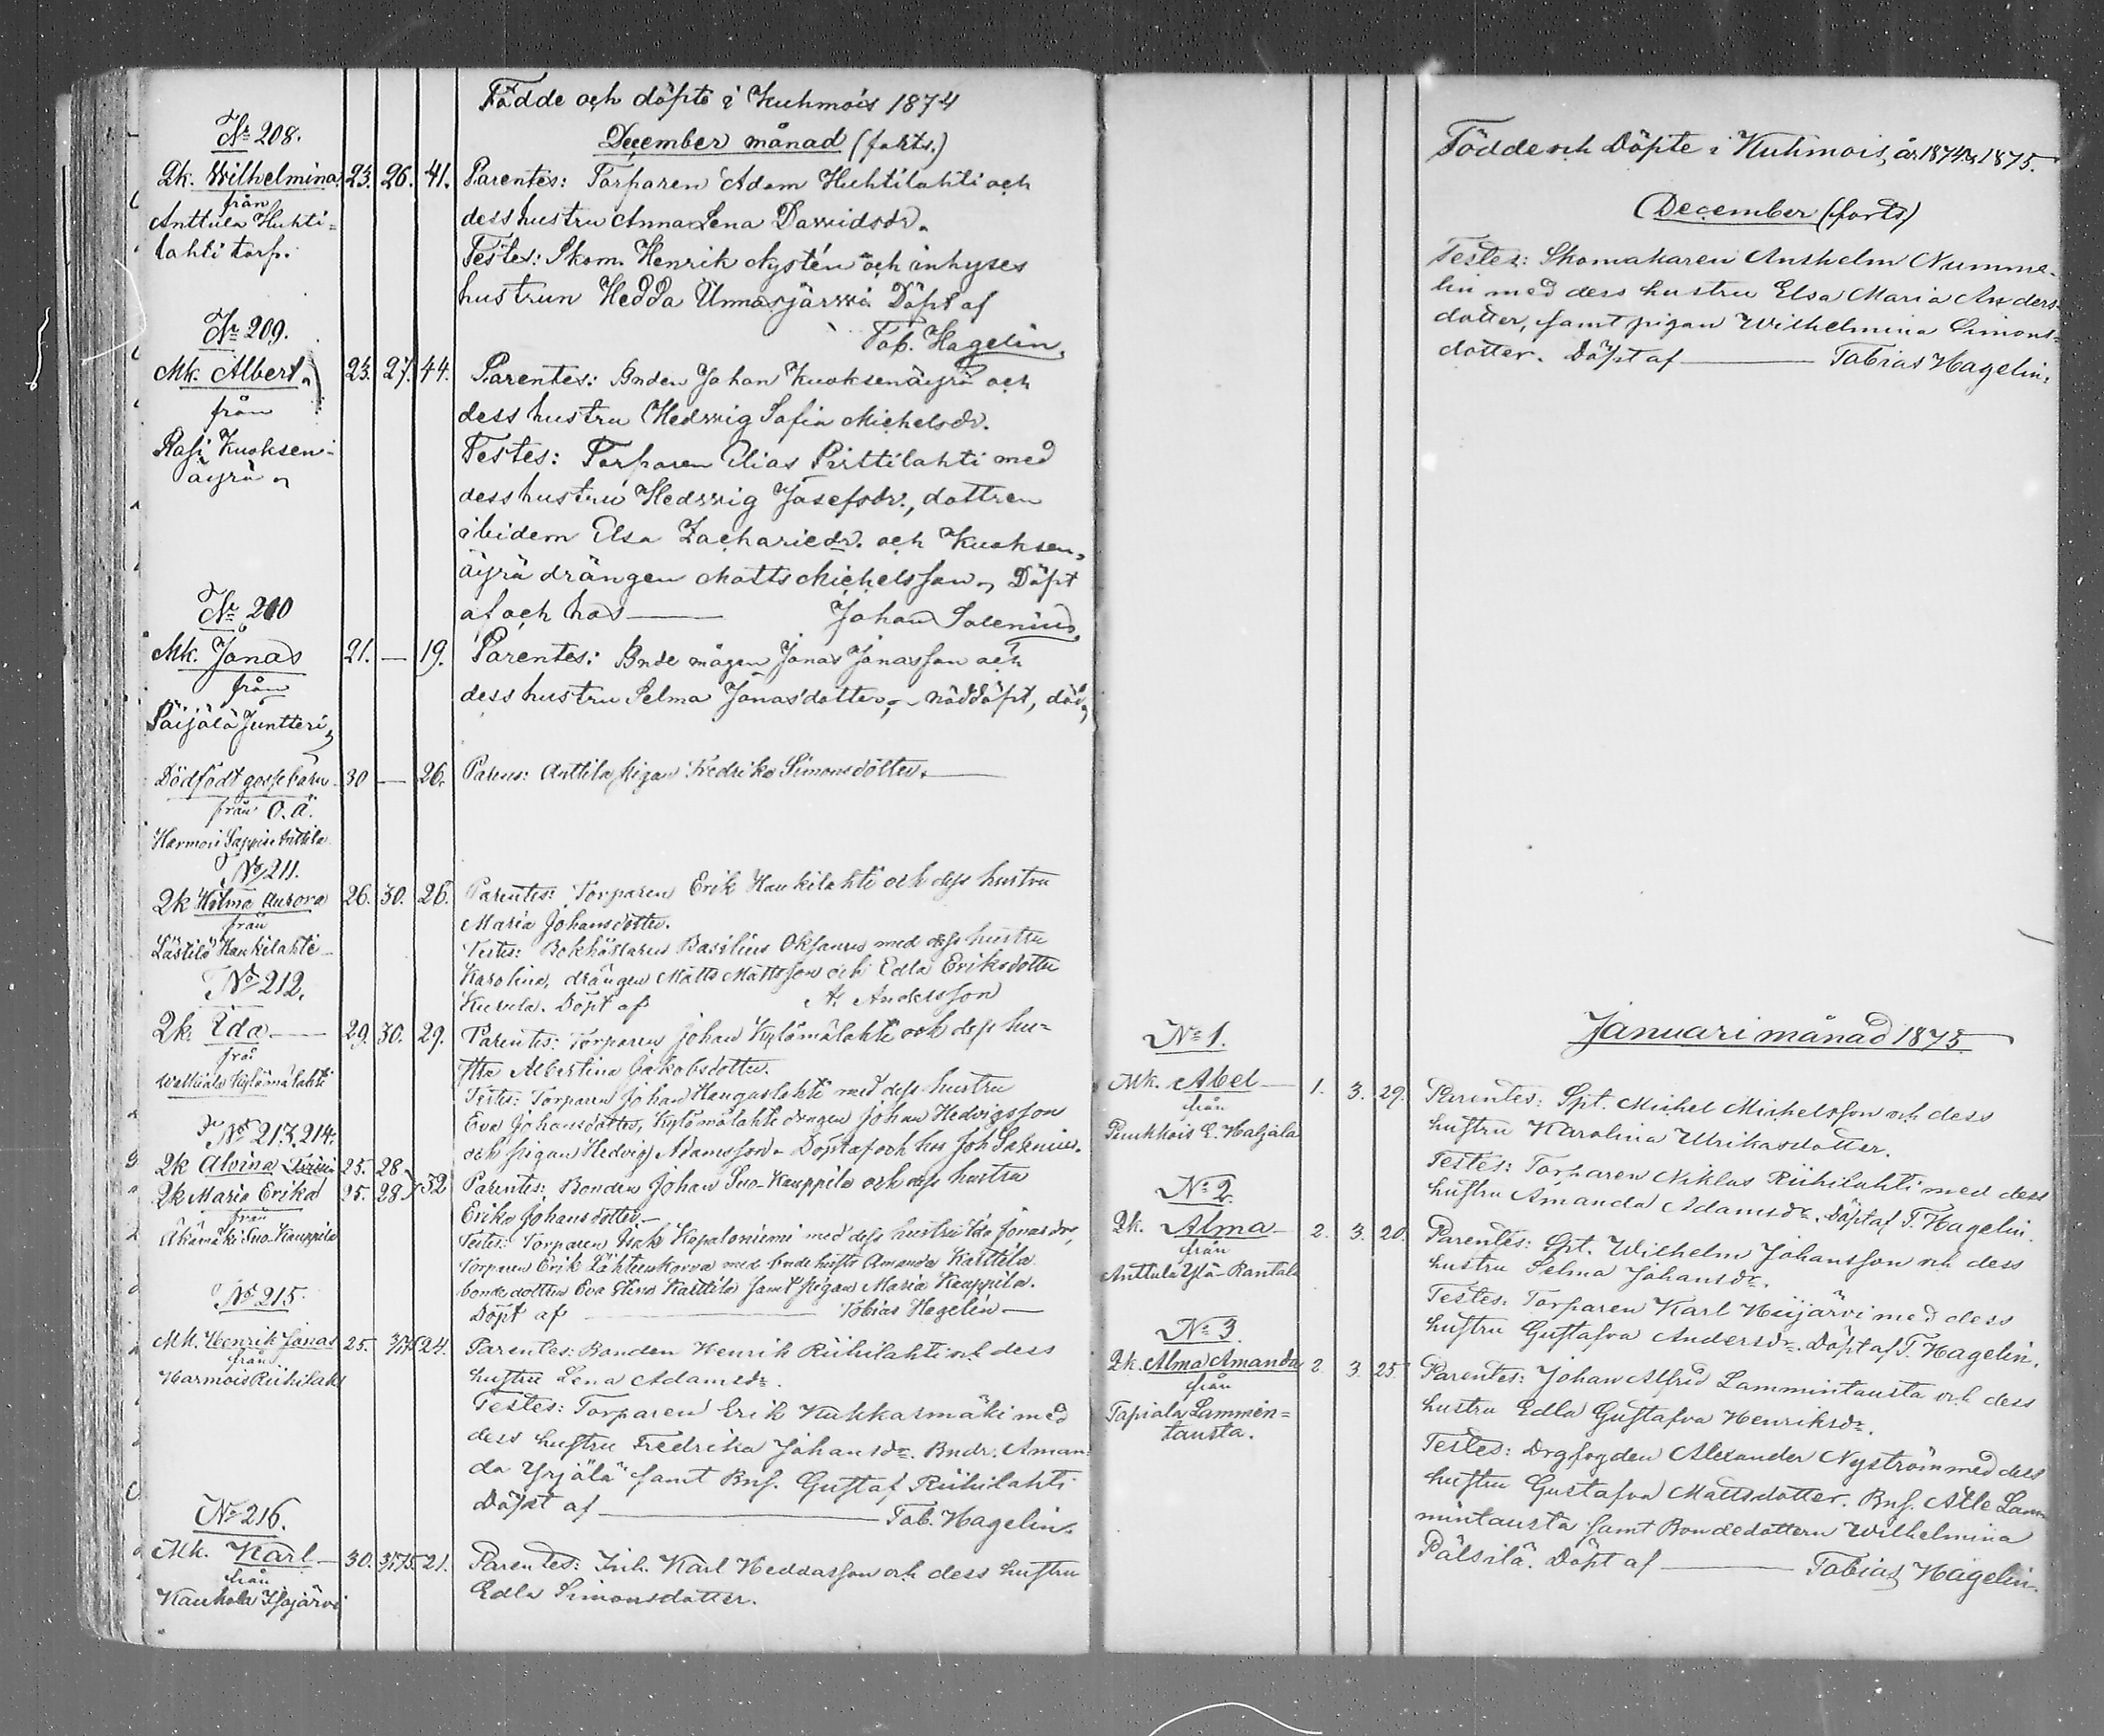 Födde och döpte i Kuhmois 1874
December månad (forts.)
Nr 208.
Qk. Wilhelmina 23. 26. 41.
från
Anttula Huhti-
lahti torp.
Parentes: Torparen Adam Huhtilahti och
dess hustru Anna Lena Dawidsdr.
Testes: Skom. Henrik Nystén och inhyses
hustrun Hedda Unnasjärwi Döpt af
Tob. Hagelin.
Nr 209.
Mk. Albert 23. 27. 44.
från
Kuoksen-
äyrä
Parentes: Bnden Johan Kuoksenäyrä och
dess hustru Hedwig Sofia Michelsdr.
Testes: Torparen Elias Pirttilahti med
dess hustru Hedwig Josefsdr., dottren
ibidem Elsa Zachariedr. och Kuoksen-
äyrä drängen Matts Michelsson, Döpt
af och hos — Johan Salenius.
Nr 210
Mk. Jonas 21. — 19.
från
Päijälä Juntteri
Parentes: Bnde mågen Jonas Jonasson och
dess hustru Selma Jonasdotter, nöddöpt, död,
Dödfödt gossebarn 30 — 26.
från O. ä.
Harmois Anttila
Parens: Anttila pigan Fredrika Simonsdotter.
No 211.
Qk Hilma Aurora 26. 30. 26.
från
Lästilä Haukilahti
Parentes: Torparen Erik Haukilahti och dess hustru
Maria Johansdotter.
Testes: Bokhållaren Basilius Oksanen med dess hustru
Karolina, drängen Matts Mattsson och Edla Eriksdotter
Döpt af A. Andersson
No 212.
Qk. Ida 29. 30. 29.
från
Kylämälahti
Parentes: Torparen Johan Kylämälahti och dess hu-
stru Albertina Jakobsdotter.
Testes: Torparen Johan Haugaslahti med dess hustru
Eva Johansdotter, Kylämälahti drängen Johan Hedvigsson
och pigan Hedvig Adamsson. Döpt af och hos Joh Salenius.
No 213, 214.
Qk Alvina 25. 28
Qk Maria Erika 25. 28 32
från
Äkämäki Iso-Kauppila
Parentes: Bonden Johan Iso-Kauppila och dess hustru
Erika Johansdotter.
Testes: Torparen Isak Hapaloniemi med dess hustru Ida Jonasdr,
Torparen Erik Lähteenkorva med bonde hustr Amanda Karttila
bonde dottern Eva Stina Karttila samt pigan Maria Kauppila.
Döpt af — Tobias Hagelin —
No 215.
Mk. Henrik Jonas 25. 3/1 75 24.
från
Harmois Riihilahti
Parentes: Bonden Henrik Riihilahti och dess
hustru Lena Adamsdr.
Testes: Torparen Erik Kukkarmäki med
dess hustru Fredrika Johansdr. Bndr. Aman-
da Yrjälä samt Bns. Gustaf Riihilahti
Döpt af — Tob. Hagelin.
No 216.
Mk. Karl 30. 3/1 75. 21.
från
Kauhala Isojärvi
Parentes: Inh. Karl Heddasson och dess hustru
Edla Simonsdotter.
Födde och Döpte i Kuhmois, år 1874 & 1875.
December (forts)
Testes: Skomakaren Anshelm Numme-
lin med dess hustru Elsa Maria Anders-
dotter, samt pigan Wilhelmina Simons-
dotter. Döpt af — Tobias Hagelin.
Januari månad 1875.
No 1.
Mk. Abel 1. 3. 29.
från
Puukkois E. Haljala
Parentes: Spt. Michel Michelsson och dess
hustru Karolina Ulrikasdotter.
Testes: Torparen Niklas Riihilahti med dess
hustru Amanda Adamsdr. Döpt af T. Hagelin.
No 2.
Qk. Alma 2. 3. 20.
från
Anttula Ylä-Rantala
Parentes: Spt. Wilhelm Johansson och dess
hustru Selma Johansdr.
Testes: Torparen Karl Hiijärvi med dess
hustru Gustafva Andersdr. Döpt af T. Hagelin.
No 3.
Qk. Alma Amanda 2. 3. 25.
från
Tapiala Lammin-
tausta.
Parentes: Johan Alfred Lammintausta och dess
hustru Edla Gustafva Henriksdr.
Testes: Drgfogden Alexander Nyström med dess
hustru Gustafva Mattsdotter. Bns. Alle Lam-
mintausta samt Bondedottern Wilhelmina
Pälsilä. Döpt af — Tobias Hagelin.